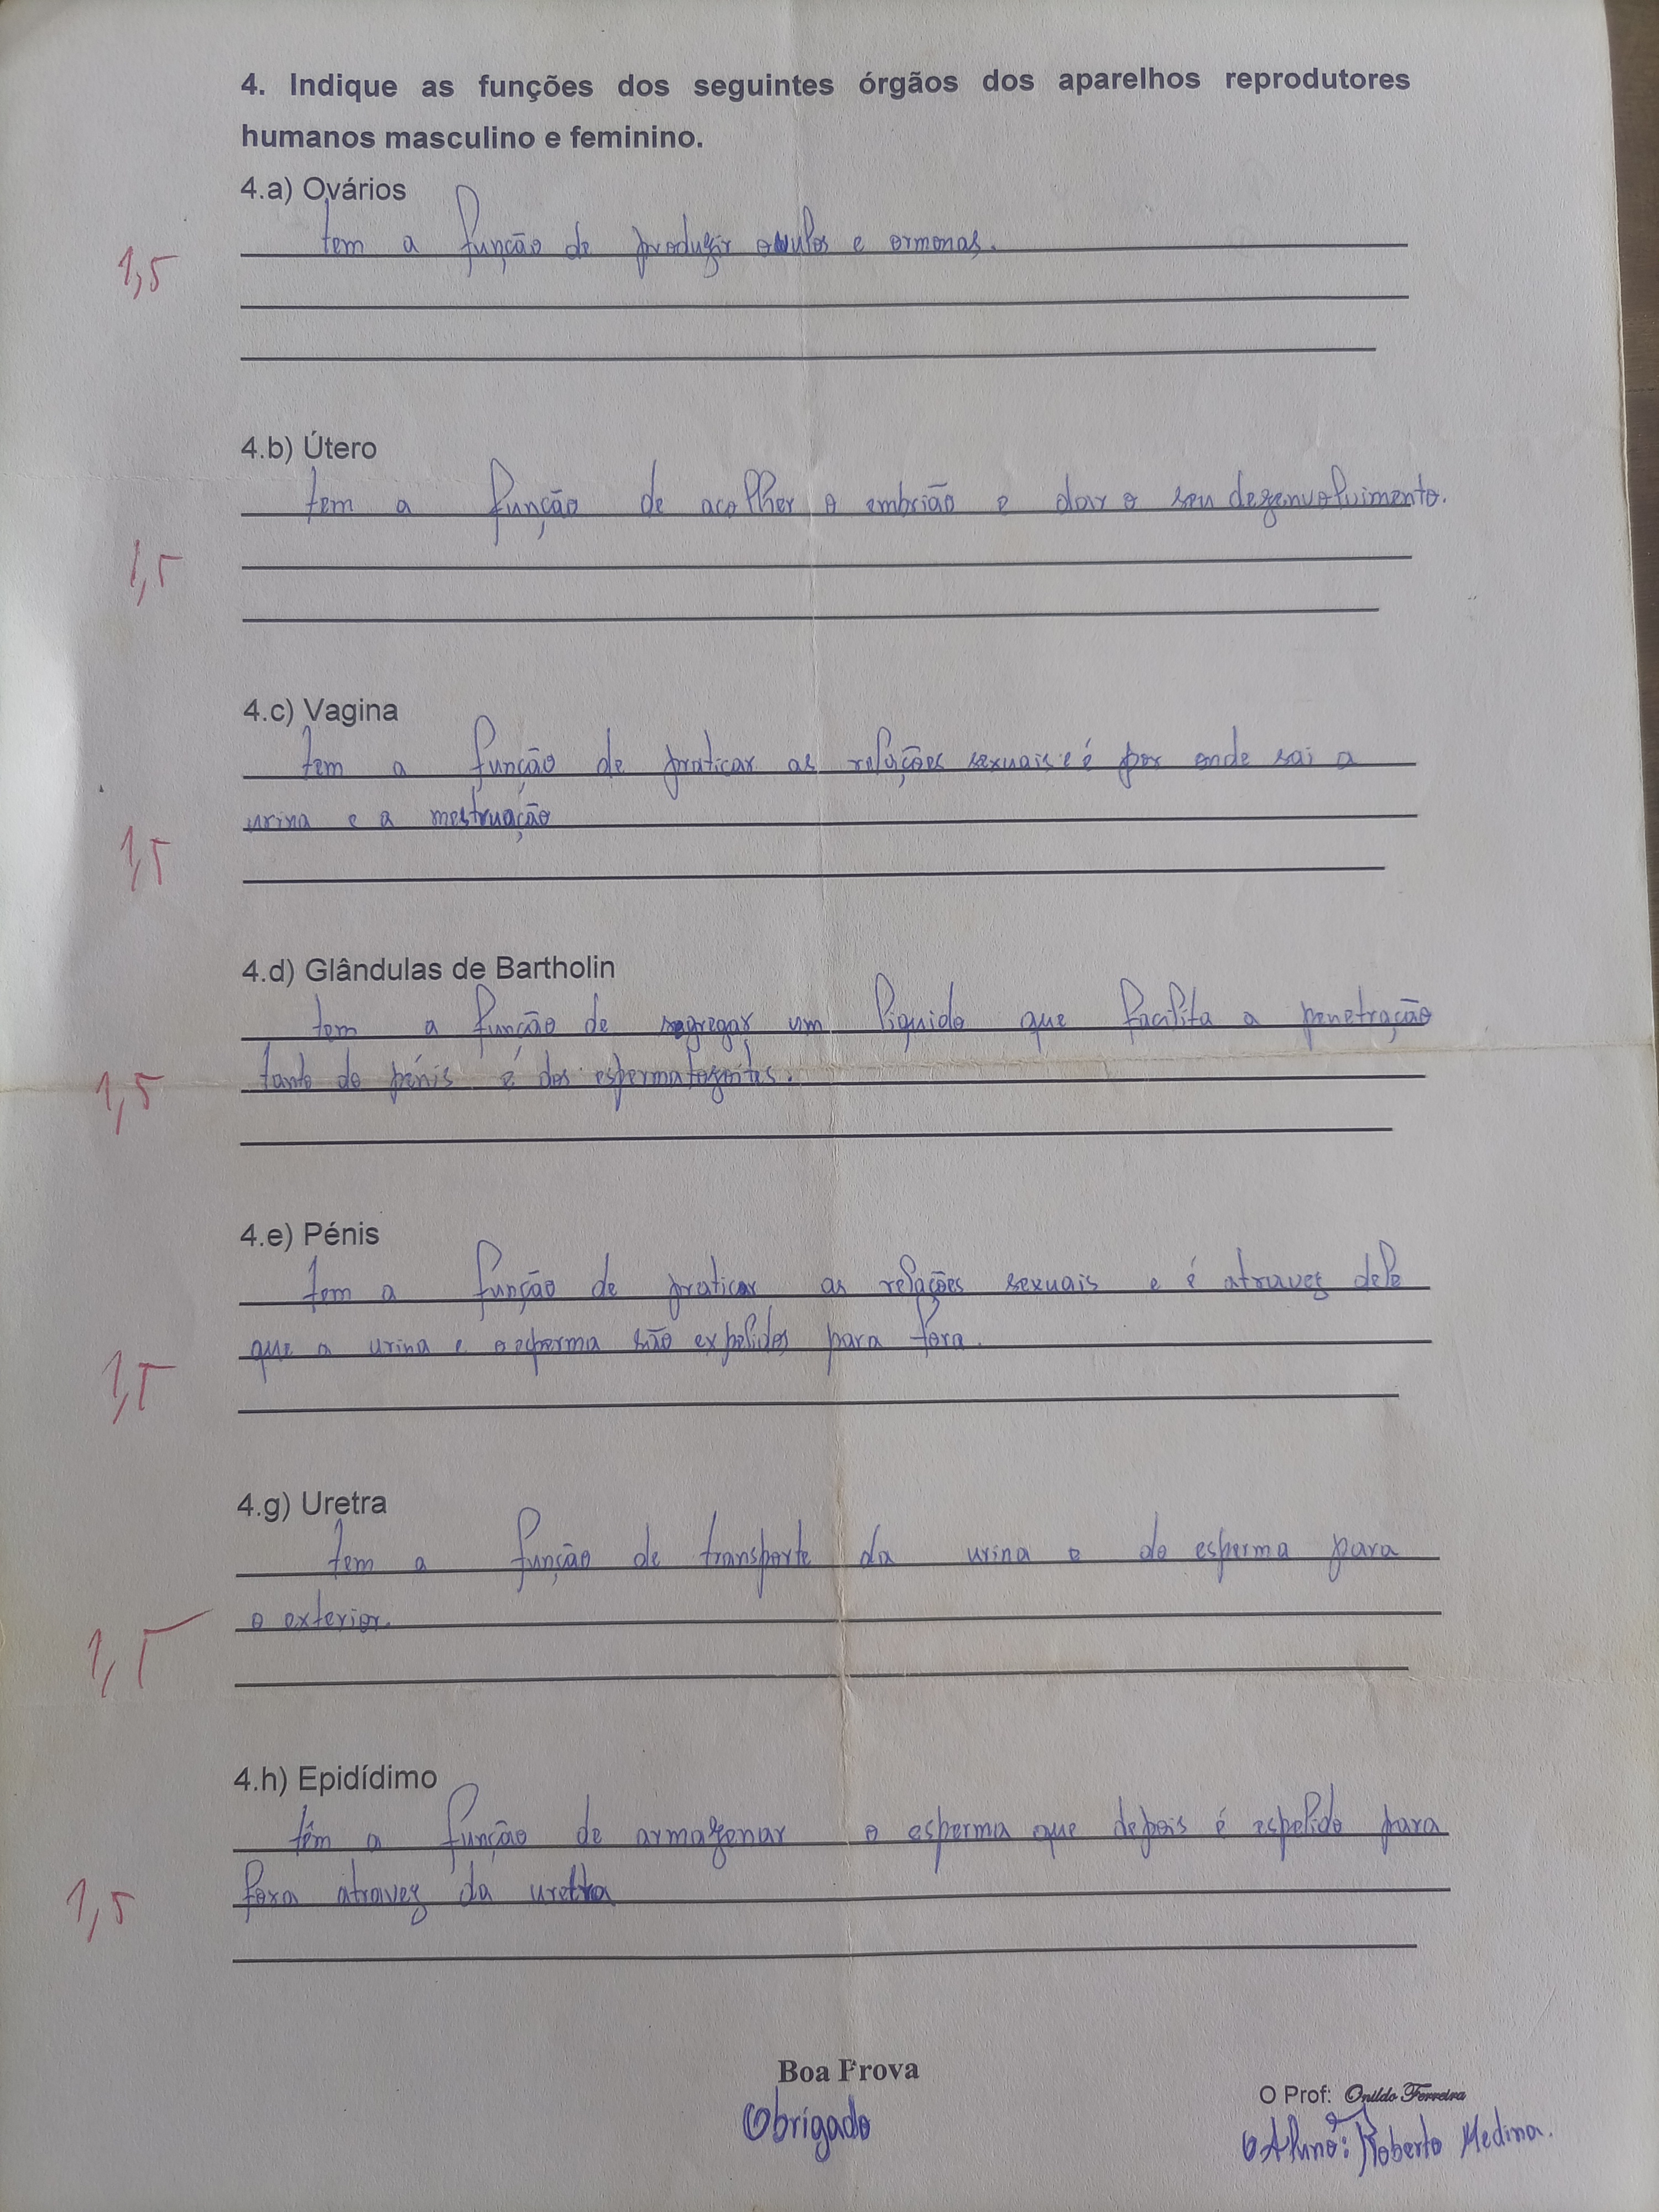 4. Indique as funções dos seguintes órgãos dos aparelhos reprodutores
humanos masculino e feminino.
4.a) Ovários
tem a função de produzir ovulos e ormonas.
1,5
4.b) Útero
tem a função de acolher o embrião e dar o seu dezenvolvimento.
1,5
4.c) Vagina
tem a função de praticar as relações sexuais e é por onde sai a
urina e a mestruação
1,5
4.d) Glândulas de Bartholin
tem a função de segregar um liquido que facilita a penetração
tanto do pénis e dos espermatozoites.
1,5
4.e) Pénis
tem a função de praticar as relações sexuais e é atravez dele
que a urina e o esperma são expelidos para fora.
1,5
4.g) Uretra
tem a função de transporte da urina e do esperma para
o exterior.
1,5
4.h) Epidídimo
têm a função de armazenar o esperma que depois é espelido para
fora atravez da uretra
1,5
Boa Prova
Obrigado
O Prof: Onildo Ferreira
O Aluno: Roberto Medina.